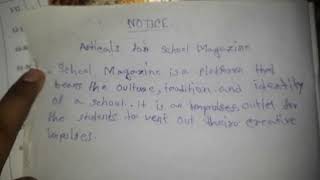 NOTICE
Articals for School Magazine
School Magazine is a platform that
bears the culture, tradition and identity
of a school. It is an outlet for
the students to vent out their creative
impulses.